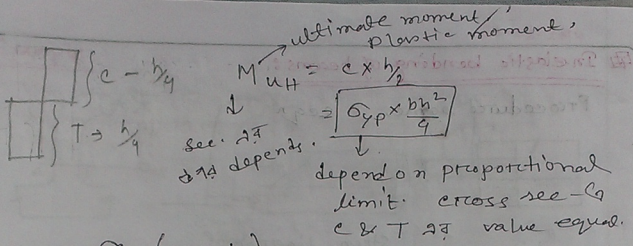 ultimate moment/
plastic moment,
C - h/4
M uH = C x h/2
T → h/4
= σyp x bh²/4
sec. এর
উপর depends.
depend on proportional
limit. cross sec-এ
C & T এর value equal.